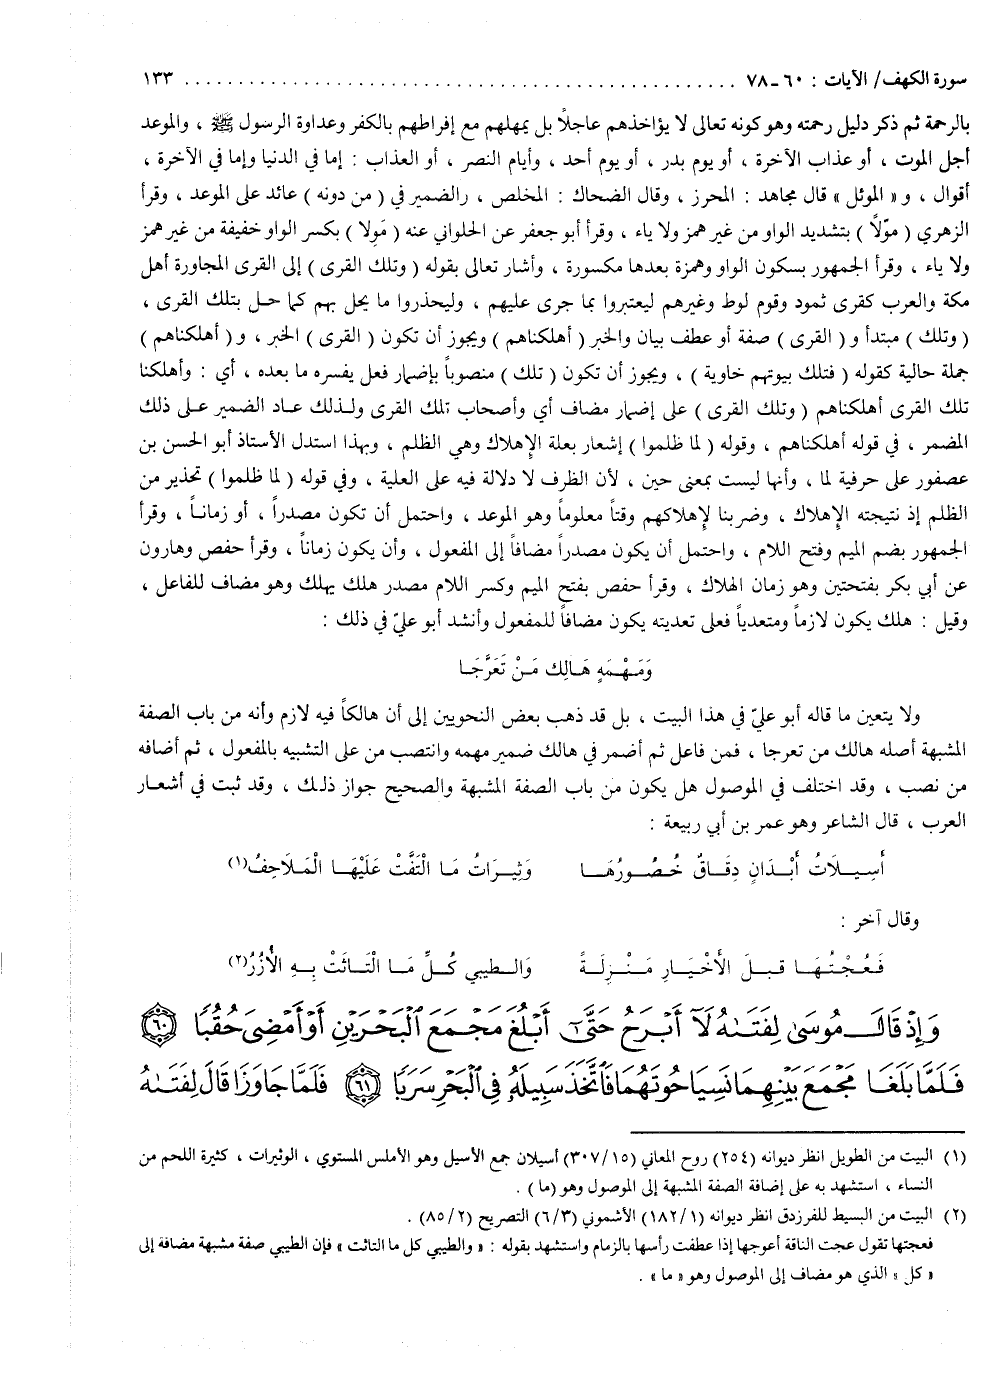 سورة الكهف/ الآيات : ٦٠-٧٨ .................................................. ١٣٣
بالرحمة ثم ذكر دليل رحمته وهو كونه تعالى لا يؤاخذهم عاجلاً بل يمهلهم مع إفراطهم بالكفر وعداوة الرسول ﷺ ، والموعد
أجل الموت ، أو عذاب الآخرة ، أو يوم بدر ، أو يوم أحد ، وأيام النصر ، أو العذاب : إما في الدنيا وإما في الآخرة ،
أقوال ، و« الموئل » قال مجاهد : المحرز ، وقال الضحاك : المخلص ، والضمير في ( من دونه ) عائد على الموعد ، وقرأ
الزهري ( موّلاً ) بتشديد الواو من غير همز ولا ياء ، وقرأ أبو جعفر عن الحلواني عنه ( مَوِلا ) بكسر الواو خفيفة من غير همز
ولا ياء ، وقرأ الجمهور بسكون الواو وهمزة بعدها مكسورة ، وأشار تعالى بقوله ( وتلك القرى ) إلى القرى المجاورة أهل
مكة والعرب كقرى ثمود وقوم لوط وغيرهم ليعتبروا بما جرى عليهم ، وليحذروا ما يحل بهم كما حل بتلك القرى ،
( وتلك ) مبتدأ و( القرى ) صفة أو عطف بيان والخبر ( أهلكناهم ) ويجوز أن تكون ( القرى ) الخبر ، و( أهلكناهم )
جملة حالية كقوله ( فتلك بيوتهم خاوية ) ، ويجوز أن تكون ( تلك ) منصوباً بإضمار فعل يفسره ما بعده ، أي : وأهلكنا
تلك القرى أهلكناهم ( وتلك القرى ) على إضمار مضاف أي وأصحاب تلك القرى ولذلك عاد الضمير على ذلك
المضمر ، في قوله أهلكناهم ، وقوله ( لما ظلموا ) إشعار بعلة الإهلاك وهي الظلم ، وبهذا استدل الأستاذ أبو الحسن بن
عصفور على حرفية لما ، وأنها ليست بمعنى حين ، لأن الظرف لا دلالة فيه على العلية ، وفي قوله ( لما ظلموا ) تحذير من
الظلم إذ نتيجته الإهلاك ، وضربنا لإهلاكهم وقتاً معلوماً وهو الموعد ، واحتمل أن تكون مصدراً ، أو زماناً ، وقرأ
الجمهور بضم الميم وفتح اللام ، واحتمل أن يكون مصدراً مضافاً إلى المفعول ، وأن يكون زماناً ، وقرأ حفص وهارون
عن أبي بكر بفتحتين وهو زمان الهلاك ، وقرأ حفص بفتح الميم وكسر اللام مصدر هلك يهلك وهو مضاف للفاعل ،
وقيل : هلك يكون لازماً ومتعدياً فعلى تعديته يكون مضافاً للمفعول وأنشد أبو عليّ في ذلك :
وَمَهْمَهٍ هَالِكِ مَنْ تَعَرَّجَا
ولا يتعين ما قاله أبو عليّ في هذا البيت ، بل قد ذهب بعض النحويين إلى أن هالكاً فيه لازم وأنه من باب الصفة
المشبهة أصله هالك من تعرجا ، فمن فاعل ثم أضمر في هالك ضمير مهمه وانتصب من على التشبيه بالمفعول ، ثم أضافه
من نصب ، وقد اختلف في الموصول هل يكون من باب الصفة المشبهة والصحيح جواز ذلك ، وقد ثبت في أشعار
العرب ، قال الشاعر وهو عمر بن أبي ربيعة :
أَسِيلَاتُ أَبْدَانٍ دِقَاقٌ خُصُورُهَا وَثِيرَاتُ مَا الْتَفَّتْ عَلَيْهَا الْمَلَاحِفُ(١)
وقال آخر :
فَعُجْتُهَا قِبلَ الأَخْيَارِ مَنْزِلَةً وَالطيبي كُلِّ مَا التَاثَتْ بِهِ الأُزُرُ(٢)
وَإِذْ قَالَ مُوسَىٰ لِفَتَىٰهُ لَآ أَبْرَحُ حَتَّىٰٓ أَبْلُغَ مَجْمَعَ ٱلْبَحْرَيْنِ أَوْ أَمْضِىَ حُقُبًا ۝٦٠
فَلَمَّا بَلَغَا مَجْمَعَ بَيْنِهِمَا نَسِيَا حُوتَهُمَا فَٱتَّخَذَ سَبِيلَهُۥ فِى ٱلْبَحْرِ سَرَبًا ۝٦١ فَلَمَّا جَاوَزَا قَالَ لِفَتَىٰهُ
(١) البيت من الطويل انظر ديوانه (٢٥٤) روح المعاني (٣٠٧/١٥) أسيلان جمع الأسيل وهو الأملس المستوي ، الوثيرات ، كثيرة اللحم من
النساء ، استشهد به على إضافة الصفة المشبهة إلى الموصول وهو (ما ) .
(٢) البيت من البسيط للفرزدق انظر ديوانه (١٨٢/١) الأشموني (٦/٣) التصريح (٨٥/٢) .
فعجتها تقول عجت الناقة أعوجها إذا عطفت رأسها بالزمام واستشهد بقوله : « والطيبي كل ما التاثت » فإن الطيبي صفة مشبهة مضافة إلى
« كل » الذي هو مضاف إلى الموصول وهو « ما » .